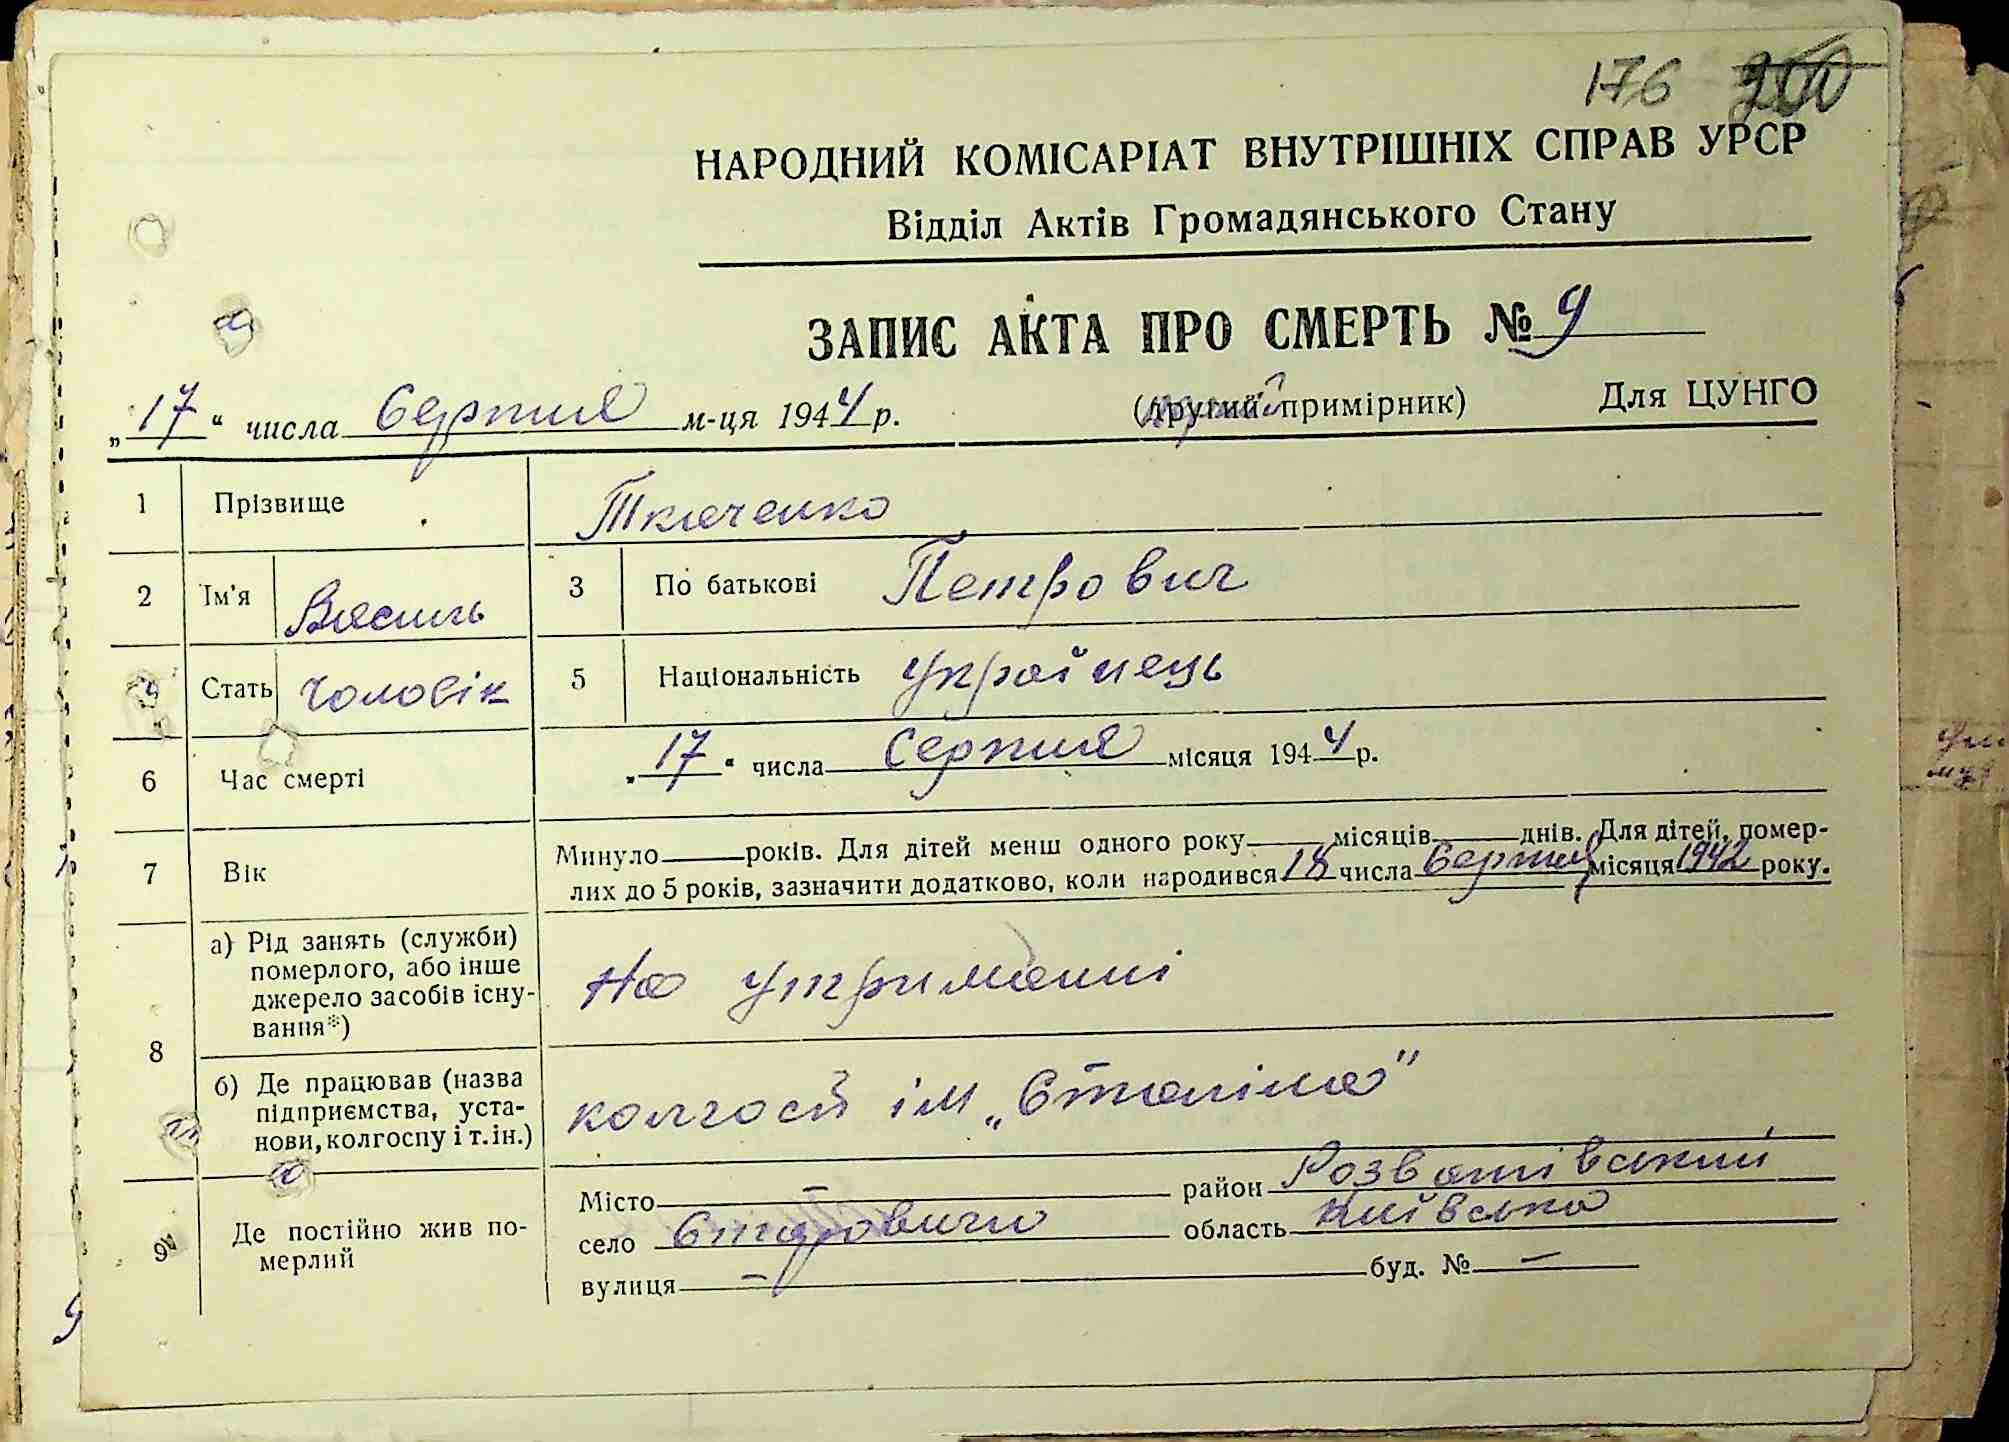 176 200
НАРОДНИЙ КОМІСАРІАТ ВНУТРІШНІХ СПРАВ УРСР
Відділ Актів Громадянського Стану
ЗАПИС АКТА ПРО СМЕРТЬ № 9
„17“ числа Серпня м-ця 1944 р. (другий примірник) Для ЦУНГО
1 Прізвище Ткаченко
2 Ім'я Василь 3 По батькові Петрович
4 Стать Чоловік 5 Національність Українець
6 Час смерті „17“ числа Серпня місяця 1944 р.
7 Вік Минуло років. Для дітей менш одного року місяців днів. Для дітей, помер-
лих до 5 років, зазначити додатково, коли народився 18 числа Серпня місяця 1942 року.
8 а) Рід занять (служби)
померлого, або інше
джерело засобів існу-
вання*)
На утриманні
б) Де працював (назва
підприємства, уста-
нови, колгоспу і т. ін.)
колгосп ім „Сталіна"
9 Де постійно жив по-
мерлий
Місто – район Розважівський
село СтароVичи область Київська
вулиця – буд. № –